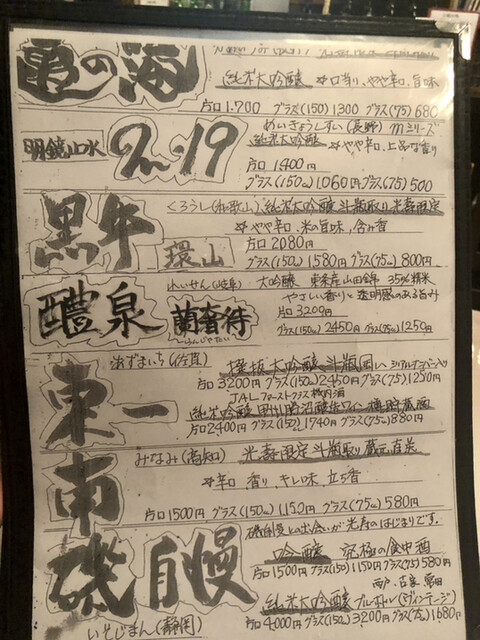 亀の海
純米大吟醸 ☆口当り、やや辛口、旨味
片口1.700 グラス(150)1300 グラス(75)680
明鏡止水
めいきょうしすい(長野)mシリーズ
純米大吟醸 ☆やや辛口、上品な香り
片口1400円
グラス(150cc)1060円グラス(75)500
黒牛
環山
くろうし(和歌山)純米大吟醸 斗瓶取り 限定
☆やや辛口、米の旨味、含み香
片口2080円
グラス(150cc)1580円グラス(75cc)800円
醴泉
蘭奢待
らんじゃたい
れいせん(岐阜) 大吟醸 東条産山田錦 35%精米
やさしい香りと透明感のある旨み
片口3200円
グラス(150cc)2450円グラス(75cc)1250円
東一
あずまいち(佐賀)
選抜大吟醸 斗瓶囲い シリアルナンバー入り
片口3200円グラス(150cc)2450円グラス(75cc)1250円
JALファーストクラス機内酒
純米吟醸
片口2400円グラス(150cc)1740円グラス(75cc)880円
南
みなみ(高知) 限定斗瓶取り 蔵元直送
☆辛口 香り キレ味 立ち香
片口1500円グラス(150cc)1150円グラス(75cc)580円
磯自慢
いそじまん(静岡)
磯自慢との出会いが のはじまりです。
吟醸 究極の食中酒
片口1500円グラス(150)1150円グラス(75cc)580円
純米大吟醸 ブルーボトル(ヴィンテージ)
片口4000円グラス(150cc)3200円グラス(75)1680円